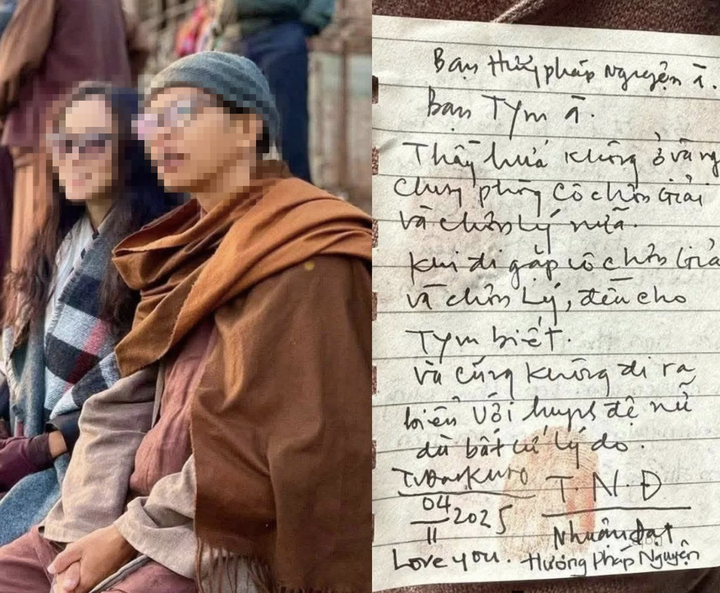 Bạn Hướng pháp Nguyện à.
Bạn Tym à.
Thầy hứa không ở và ng
chung phòng cô chơn Giải
và chơn Lý nữa.
Khi đi gặp cô chơn Giả
và chơn Lý, đều cho
Tym biết.
và cũng không đi ra
biển với huynh đệ nữ
dù bất cứ lý do.
04
11 2025
T.N.Đ
Nhuận đạt
Love you. Hướng Pháp Nguyện